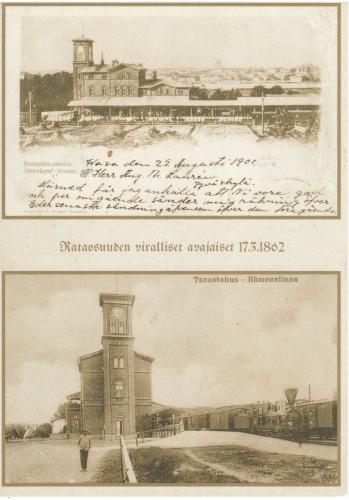 Rautatien asema.
Järnvägsstationen.
Vasa den 22 Augusti 1901.
Herr Aug. Th. Laurén
Jyväskylä.
Härmed får jag anhålla att Ni vore god
och per omgående sänder mig räkning öfver
Eder senaste sändning
öfver den föregående
Rataosuuden viralliset avajaiset 17.3.1862
Tavastehus - Hämeenlinna